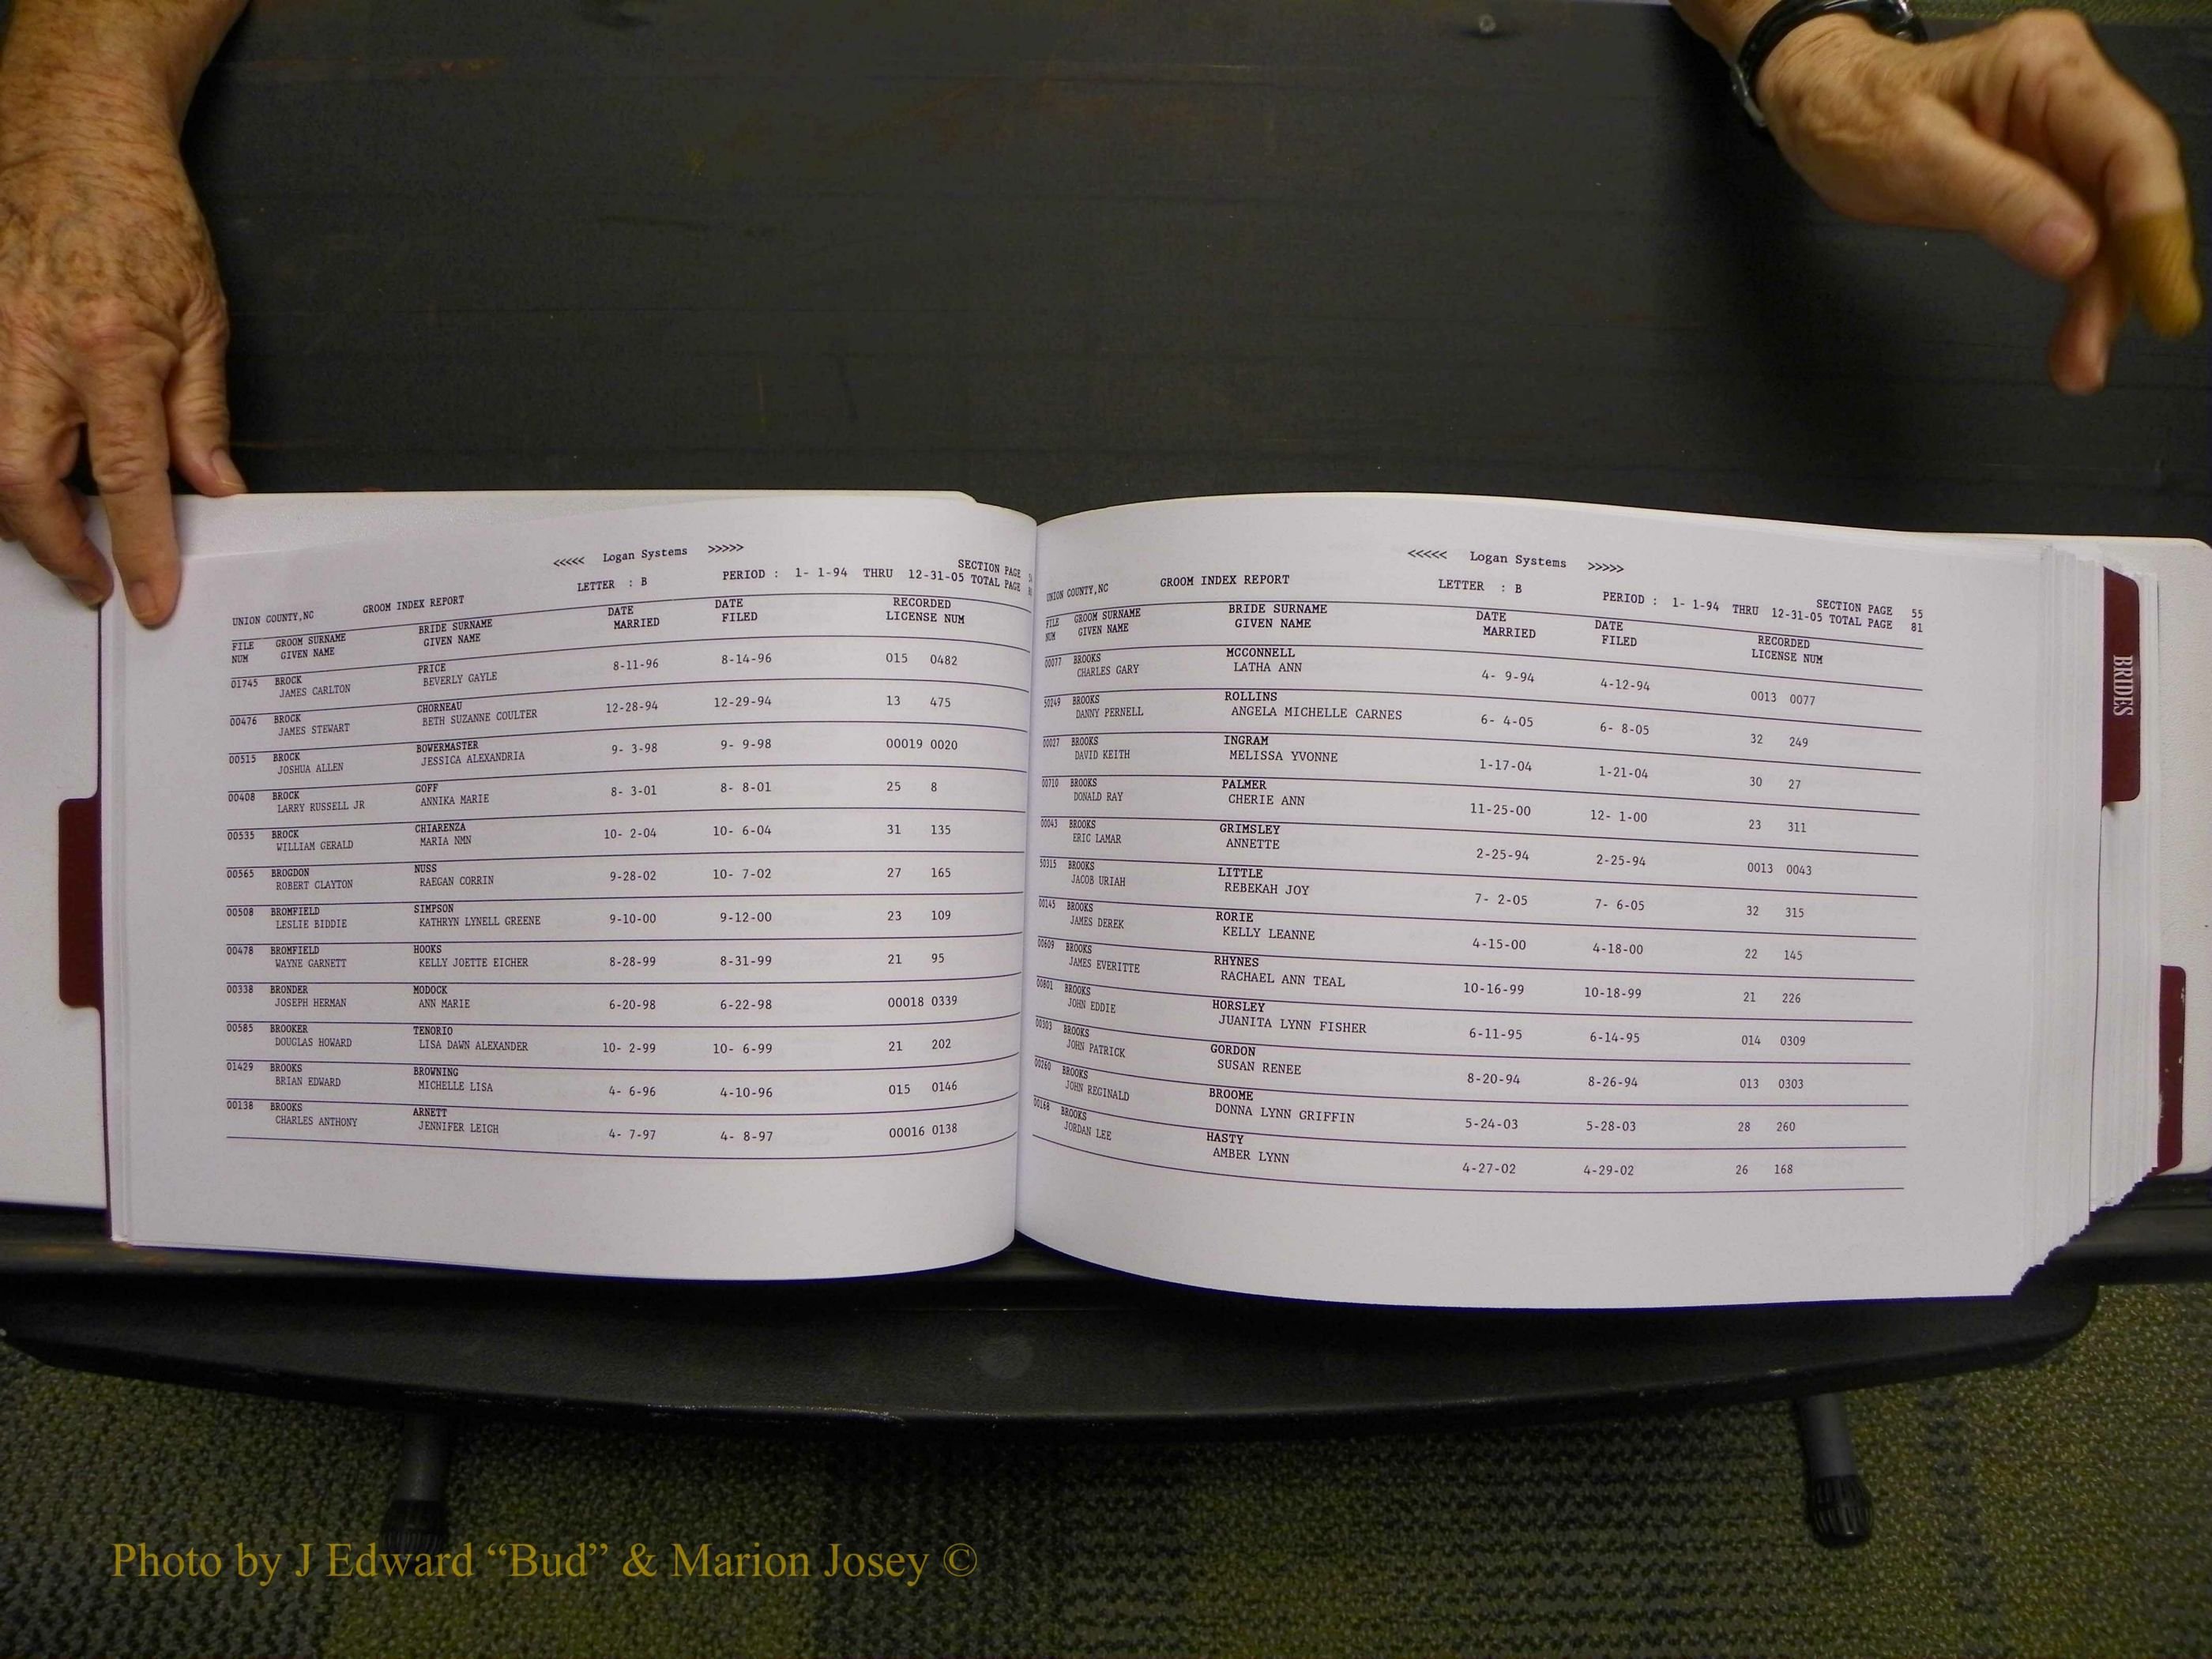 <<<<< Logan Systems >>>>>
UNION COUNTY,NC GROOM INDEX REPORT LETTER : B PERIOD : 1- 1-94 THRU 12-31-05 SECTION PAGE
TOTAL PAGE
FILE GROOM SURNAME BRIDE SURNAME DATE DATE RECORDED
NUM GIVEN NAME GIVEN NAME MARRIED FILED LICENSE NUM
01745 BROCK PRICE 8-11-96 8-14-96 015 0482
JAMES CARLTON BEVERLY GAYLE
00476 BROCK CHORNEAU 12-28-94 12-29-94 13 475
JAMES STEWART BETH SUZANNE COULTER
00515 BROCK BOWERMASTER 9- 3-98 9- 9-98 00019 0020
JOSHUA ALLEN JESSICA ALEXANDRIA
00408 BROCK GOFF 8- 3-01 8- 8-01 25 8
LARRY RUSSELL JR ANNIKA MARIE
00535 BROCK CHIARENZA 10- 2-04 10- 6-04 31 135
WILLIAM GERALD MARIA NMN
00565 BROGDON NUSS 9-28-02 10- 7-02 27 165
ROBERT CLAYTON RAEGAN CORRIN
00508 BROMFIELD SIMPSON 9-10-00 9-12-00 23 109
LESLIE BIDDIE KATHRYN LYNELL GREENE
00478 BROMFIELD HOOKS 8-28-99 8-31-99 21 95
WAYNE GARNETT KELLY JOETTE EICHER
00338 BRONDER MODOCK 6-20-98 6-22-98 00018 0339
JOSEPH HERMAN ANN MARIE
00585 BROOKER TENORIO 10- 2-99 10- 6-99 21 202
DOUGLAS HOWARD LISA DAWN ALEXANDER
01429 BROOKS BROWNING 4- 6-96 4-10-96 015 0146
BRIAN EDWARD MICHELLE LISA
00138 BROOKS ARNETT 4- 7-97 4- 8-97 00016 0138
CHARLES ANTHONY JENNIFER LEIGH
<<<<< Logan Systems >>>>>
UNION COUNTY,NC GROOM INDEX REPORT LETTER : B PERIOD : 1- 1-94 THRU 12-31-05 SECTION PAGE 55
TOTAL PAGE 81
FILE GROOM SURNAME BRIDE SURNAME DATE DATE RECORDED
NUM GIVEN NAME GIVEN NAME MARRIED FILED LICENSE NUM
00077 BROOKS MCCONNELL 4- 9-94 4-12-94 0013 0077
CHARLES GARY LATHA ANN
50249 BROOKS ROLLINS 6- 4-05 6- 8-05 32 249
DANNY PERNELL ANGELA MICHELLE CARNES
00027 BROOKS INGRAM 1-17-04 1-21-04 30 27
DAVID KEITH MELISSA YVONNE
00710 BROOKS PALMER 11-25-00 12- 1-00 23 311
DONALD RAY CHERIE ANN
00043 BROOKS GRIMSLEY 2-25-94 2-25-94 0013 0043
ERIC LAMAR ANNETTE
50315 BROOKS LITTLE 7- 2-05 7- 6-05 32 315
JACOB URIAH REBEKAH JOY
00145 BROOKS RORIE 4-15-00 4-18-00 22 145
JAMES DEREK KELLY LEANNE
00609 BROOKS RHYNES 10-16-99 10-18-99 21 226
JAMES EVERITTE RACHAEL ANN TEAL
00801 BROOKS HORSLEY 6-11-95 6-14-95 014 0309
JOHN EDDIE JUANITA LYNN FISHER
00303 BROOKS GORDON 8-20-94 8-26-94 013 0303
JOHN PATRICK SUSAN RENEE
00260 BROOKS BROOME 5-24-03 5-28-03 28 260
JOHN REGINALD DONNA LYNN GRIFFIN
00168 BROOKS HASTY 4-27-02 4-29-02 26 168
JORDAN LEE AMBER LYNN
BRIDES
Photo by J Edward “Bud” & Marion Josey ©